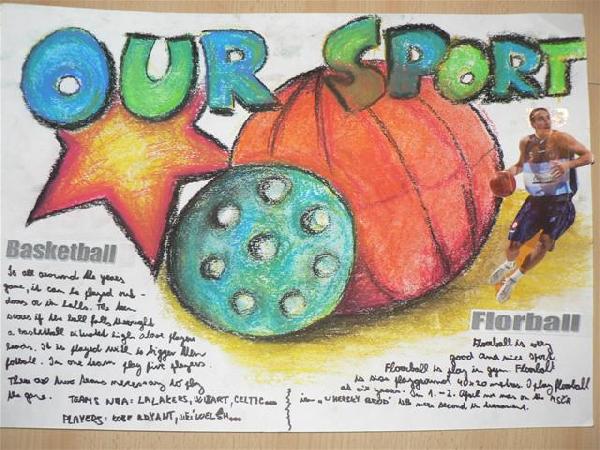 OUR SPORT
Basketball
Is all around the years
game, it can be played out-
doors or in halls. The team
scores if the ball falls through
a basketball situated high above players
heads. It is played with is bigger then
football. In one team play five players.
There are two teams necessary to play
the game. TEAMS NBA: LA LAKERS, CELTIC...
PLAYERS: KOBE BRYANT,
Florball
Floorball is very
good and nice sport.
Floorball is play in gym. Floorball
is size playground 40x20 metres. I play floorball
at six years. In 1.-2. April we was on the
in second in turnament.